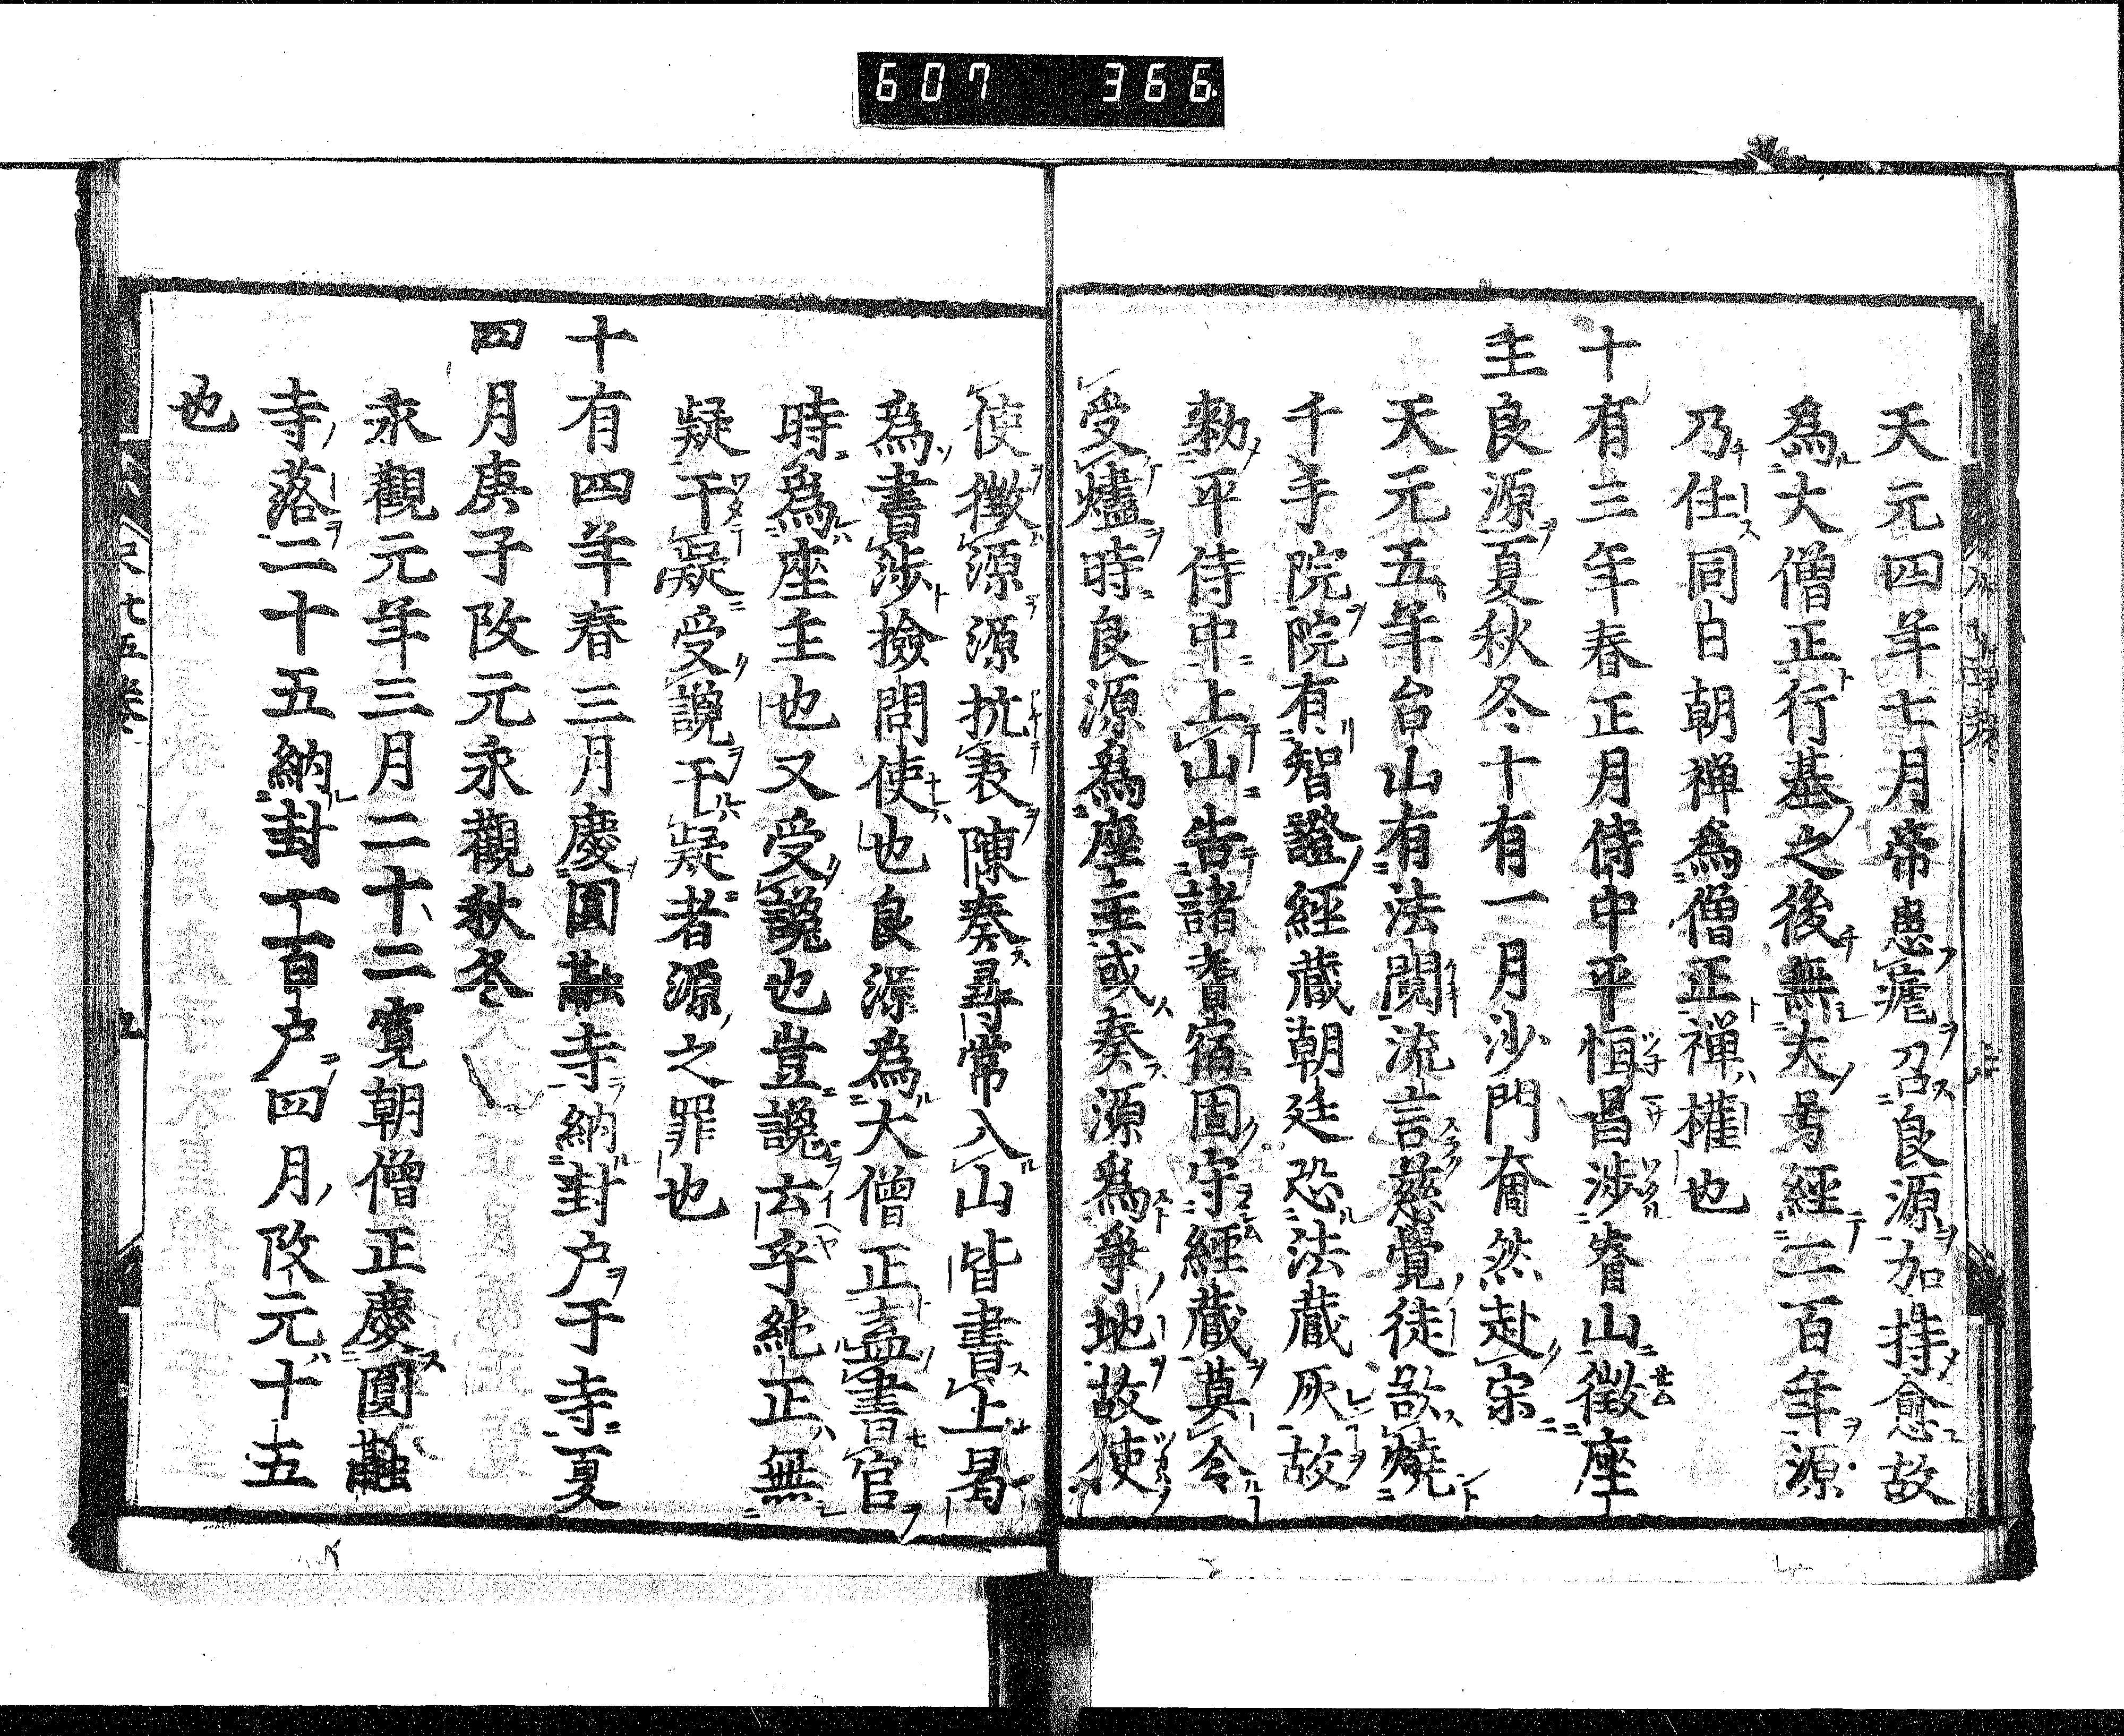 607 366
天元四年七月帝患瘧召良源加持愈故
為大僧正行基之後無大号經二百年源
乃任同白朝禅為僧正禅權也
十有三年春正月侍中平恒昌渉睿山徴座
主良源夏秋冬十有一月沙門奝然赴宗
天元五年台山有法鬩流言慈覺徒欲燒
千手院院有智證經蔵朝廷恐法蔵灰故
勅平侍中上山告諸耆宿固守經蔵莫令
受燼時良源為座主或奏源為爭地故使
使徴源源抗表陳奏尋常入山皆書上曷
為書渉撿問使也良源為大僧正盍書官
時為座主也又受讒也豈讒云乎純正無
疑干疑受讒干疑者源之罪也
十有四年春三月慶圓融寺納封戸于寺夏
四月庚子改元永觀秋冬
永觀元年三月二十二寛朝僧正慶圓融
寺落二十五納封一百戸四月改元十五
也
史七五卷
五